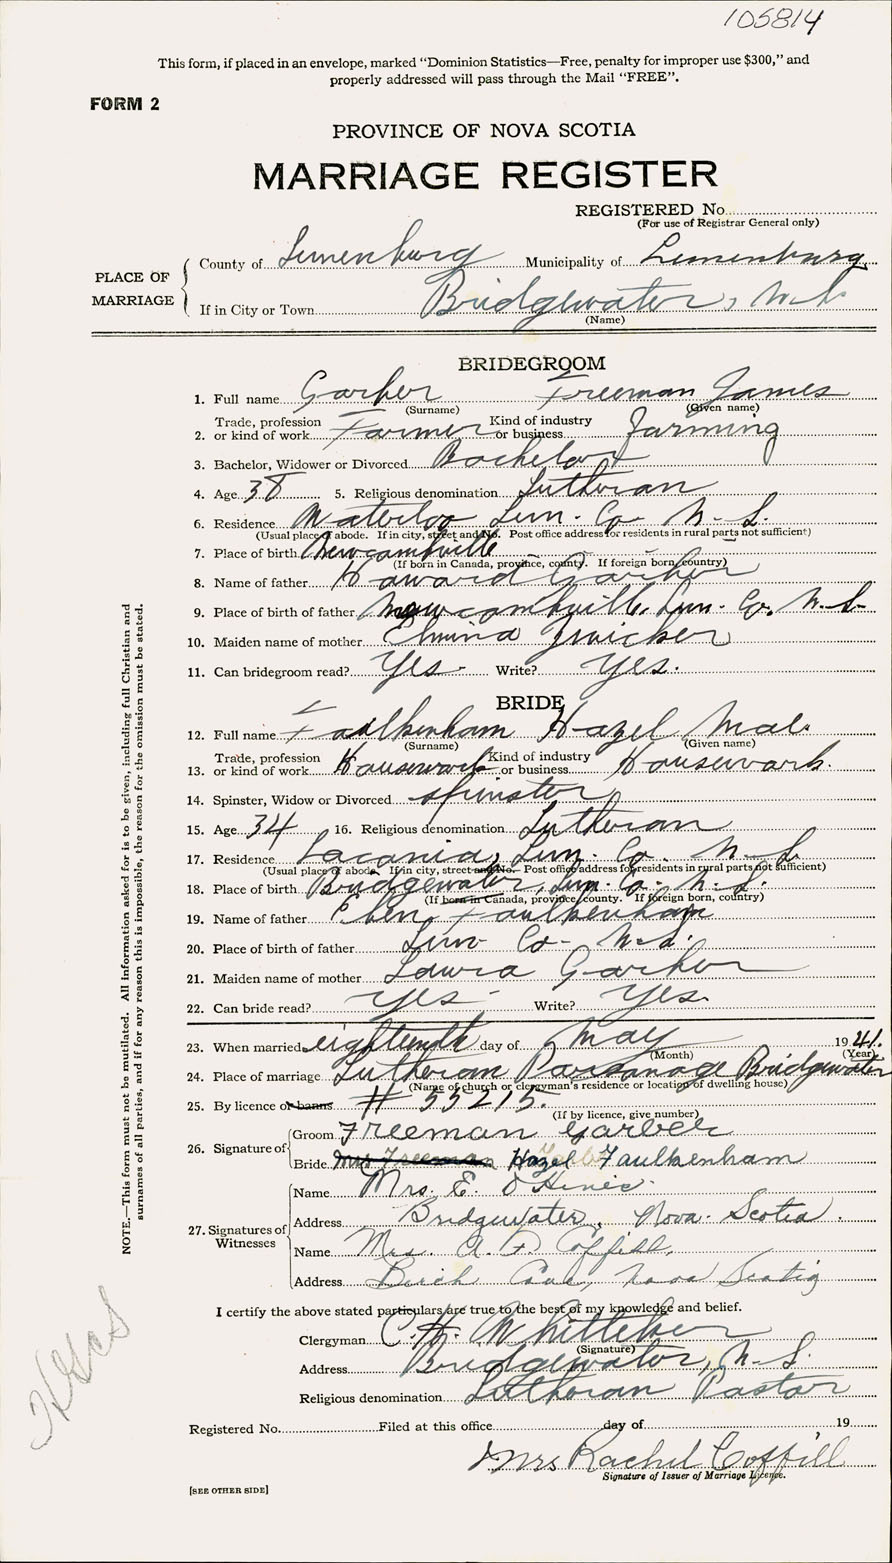 105814
This form, if placed in an envelope, marked “Dominion Statistics—Free, penalty for improper use $300,” and
properly addressed will pass through the Mail “FREE”.
FORM 2
PROVINCE OF NOVA SCOTIA
MARRIAGE REGISTER
REGISTERED No.
(For use of Registrar General only)
PLACE OF MARRIAGE
County of Lunenburg Municipality of Lunenburg
If in City or Town Bridgewater, N.S.
(Name)
BRIDEGROOM
1. Full name Garber Freeman James
(Surname) (Given name)
2. Trade, profession or kind of work Farmer Kind of industry or business Farming
3. Bachelor, Widower or Divorced Bachelor
4. Age 38 5. Religious denomination Lutheran
6. Residence Waterloo Lun. Co. N.S.
(Usual place of abode. If in city, street and No. Post office address for residents in rural parts not sufficient)
7. Place of birth Newcombville
(If born in Canada, province, county. If foreign born, country)
8. Name of father Howard Garber
9. Place of birth of father Newcombville, Lun. Co. N.S.
10. Maiden name of mother Elmina Zwicker
11. Can bridegroom read? Yes. Write? Yes.
BRIDE
12. Full name Faulkenham Hazel Mae
(Surname) (Given name)
13. Trade, profession or kind of work Housework Kind of industry or business Housework.
14. Spinster, Widow or Divorced Spinster
15. Age 34 16. Religious denomination Lutheran
17. Residence Laconia, Lun. Co. N.S.
(Usual place of abode. If in city, street and No. Post office address for residents in rural parts not sufficient)
18. Place of birth Bridgewater, Lun. Co. N.S.
(If born in Canada, province, county. If foreign born, country)
19. Name of father Eben Faulkenham
20. Place of birth of father Lun Co. N.S.
21. Maiden name of mother Laura Garber
22. Can bride read? Yes Write? Yes.
23. When married eighteenth day of May 1941.
(Month) (Year)
24. Place of marriage Lutheran Parsonage Bridgewater
(Name of church or clergyman's residence or location of dwelling house)
25. By licence or banns # 55215.
(If by licence, give number)
26. Signature of Groom Freeman Garber
Bride Mrs Freeman Hazel Faulkenham
27. Signatures of Witnesses
Name Mrs. E.
Address Bridgewater, Nova Scotia.
Name Mrs. A. F. Coffill,
Address Birch Cove, Nova Scotia
I certify the above stated particulars are true to the best of my knowledge and belief.
Clergyman C. H. Whitteker
(Signature)
Address Bridgewater, N.S.
Religious denomination Lutheran Pastor
Registered No. Filed at this office day of 19
Mrs Rachel Coffill
Signature of Issuer of Marriage Licence.
[SEE OTHER SIDE]
NOTE.—This form must not be mutilated. All information asked for is to be given, including full Christian and
surnames of all parties, and if for any reason this is impossible, the reason for the omission must be stated.